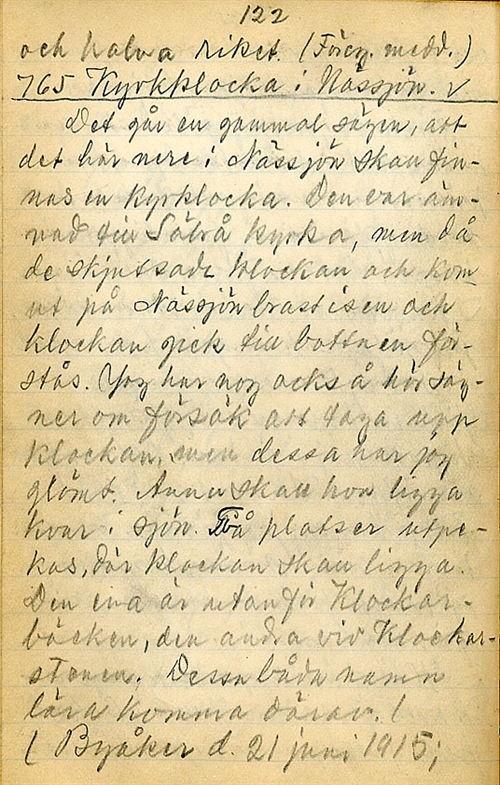 122
och halva riket. (Föreg. medd.)
765 Kyrkklocka i Nässjön. √
Det går en gammal sägen, att
det här nere i Nässjön skall fin-
nas en kyrklocka. Den var äm-
nad till Säbrå kyrka, men då
de skjutsade klockan och kom
ut på Nässjön brast isen och
klockan gick till bottnen för-
stås. Jag har nog också hör säg-
ner om försök att taga upp
klockan, men dessa har jag
glömt. Annu skall hon ligga
kvar i sjön. Två platser utpe-
kas, där klockan skall ligga.
Den ena är utanför Klockar-
bäcken, den andra vid Klockar-
stenen. Dessa båda namn
lära komma därav. /
( Byåker d. 21 juni 1915;